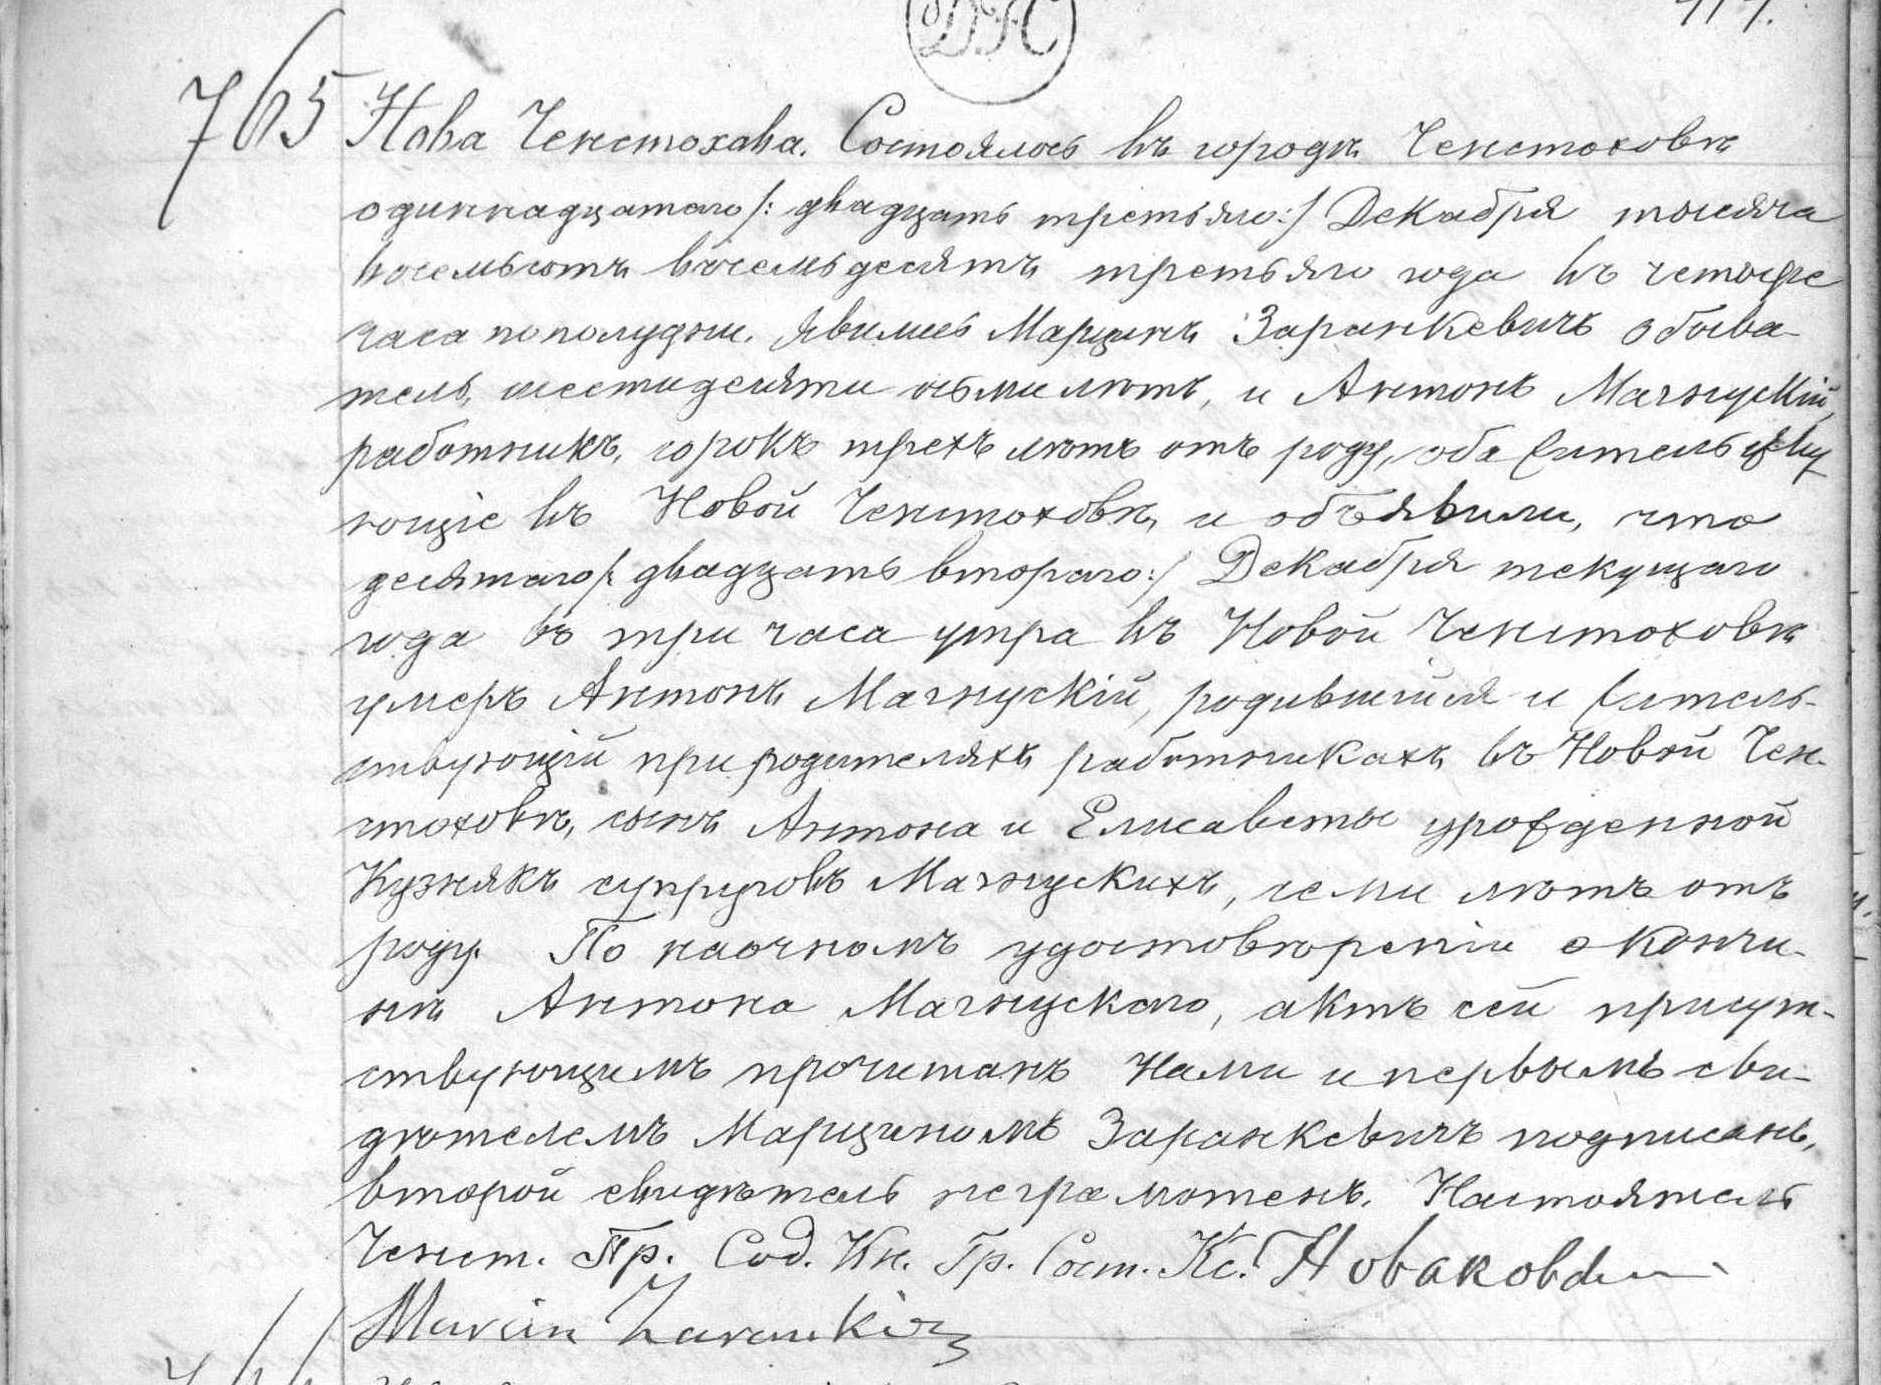 ДК
765 Нова Ченстохова. Состоялось въ городѣ Ченстоховѣ
одиннадцатаго /: двадцать третьяго :/ Декабря тысяча
восемьсотъ восемьдесятъ третьяго года въ четыре
часа по полудни. Явились Марцинъ Заранкевичъ обыва-
тель, шестидесяти осьми лѣтъ, и Антонъ Мачнускій,
работникъ, сорокъ трехъ лѣтъ отъ роду, оба жительству
ющіе въ Новой Ченстоховѣ, и объявили, что
десятаго /: двадцать втораго :/ Декабря текущаго
года въ три часа утра въ Новой Ченстоховѣ
умеръ Антонъ Мачнускій, родившійся и житель-
ствующій при родителяхъ работникахъ въ Новой Чен-
стоховѣ, сынъ Антона и Елисаветы урожденной
Кузнякъ супруговъ Мачнускихъ, семи лѣтъ отъ
роду. По наочномъ удостовѣреніи о кончи-
нѣ Антона Мачнускаго, актъ сей присут-
ствующимъ прочитанъ Нами и первымъ сви-
дѣтелемъ Марциномъ Заранкевичъ подписанъ,
второй свидѣтель неграмотенъ. Настоятель
Ченст. Пр. Сод. Кн. Гр. Сост. Кс. Новаковскі
Marcin Zarankiewicz